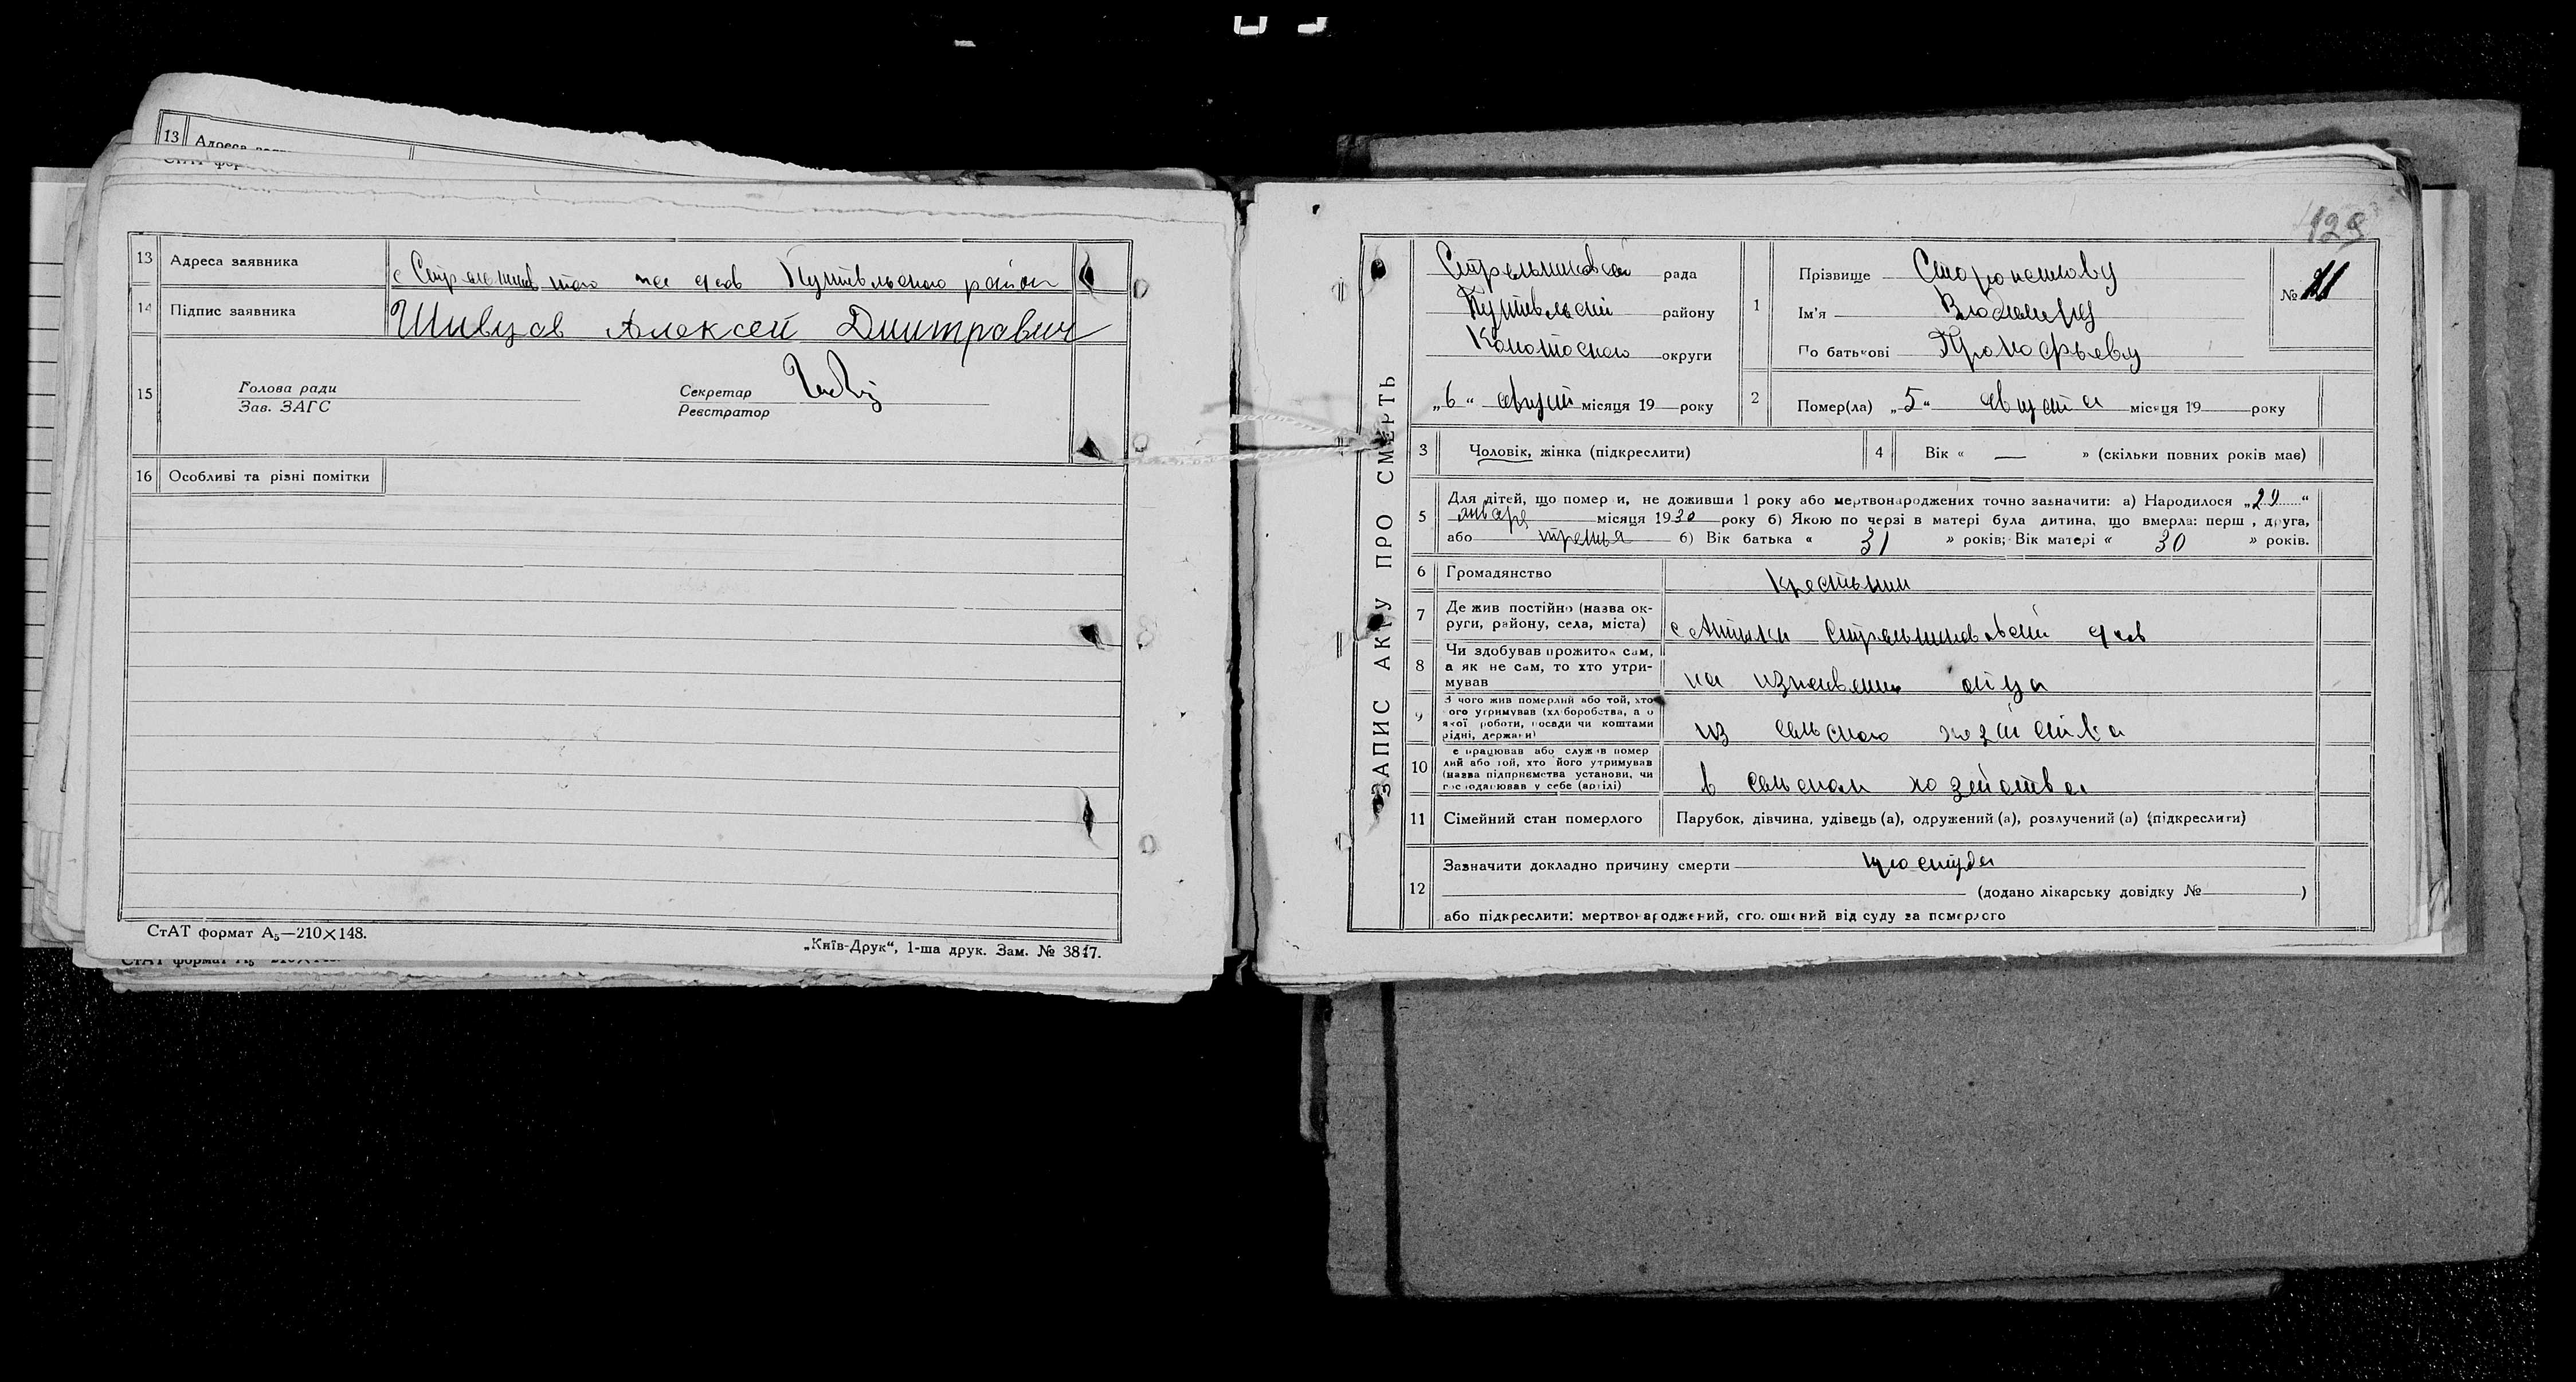 13 Адреса
СтАТ фор
13 Адреса заявника
Путивльского район
14 Підпис заявника Шивцов Алексей Дмитрович
15 Голова ради
Зав. ЗАГС
Секретар
Реєстратор
16 Особливі та різні помітки
СтАТ формат А5—210×148.
„Київ-Друк“, 1-ша друк. Зам. № 3847.
СтАТ формат А5
129
ЗАПИС АКТУ ПРО СМЕРТЬ
Стрельниковской рада
Путивльскій району
Конотопского округи
„6“ август місяця 19 року
1 Прізвище
Ім'я Владимир
По батькові Прокофьеву
№ 11
2 Помер(ла) „5“ августа місяця 19 року
3 Чоловік, жінка (підкреслити)
4 Вік « — » (скільки повних років має)
5 Для дітей, що померли, не доживши 1 року або мертвонароджених точно зазначити: а) Народилося „20“
января місяця 1930 року б) Якою по черзі в матері була дитина, що вмерла: перш , друга,
або третья б) Вік батька « 31 » років; Вік матері « 30 » років.
6 Громадянство Крестьянин
7 Де жив постійно (назва ок-
руги, району, села, міста)
8 Чи здобував прожиток сам,
а як не сам, то хто утри-
мував
на отца
9 З чого жив померлий або той, хто
його утримував (хліборобства, а о
якої роботи, посади чи коштами
рідні, держави)
из сельского хозяйства
10 е працював або служив помер
лий або той, хто його утримував
(назва підприємства установи, чи
господарював у себе (артілі)
в сельском хозяйства
11 Сімейний стан померлого Парубок, дівчина, удівець (а), одружений (а), розлучений (а) (підкреслити)
12 Зазначити докладно причину смерти простуда
(додано лікарську довідку № )
або підкреслити: мертвонароджений, оголошений від суду за померлого